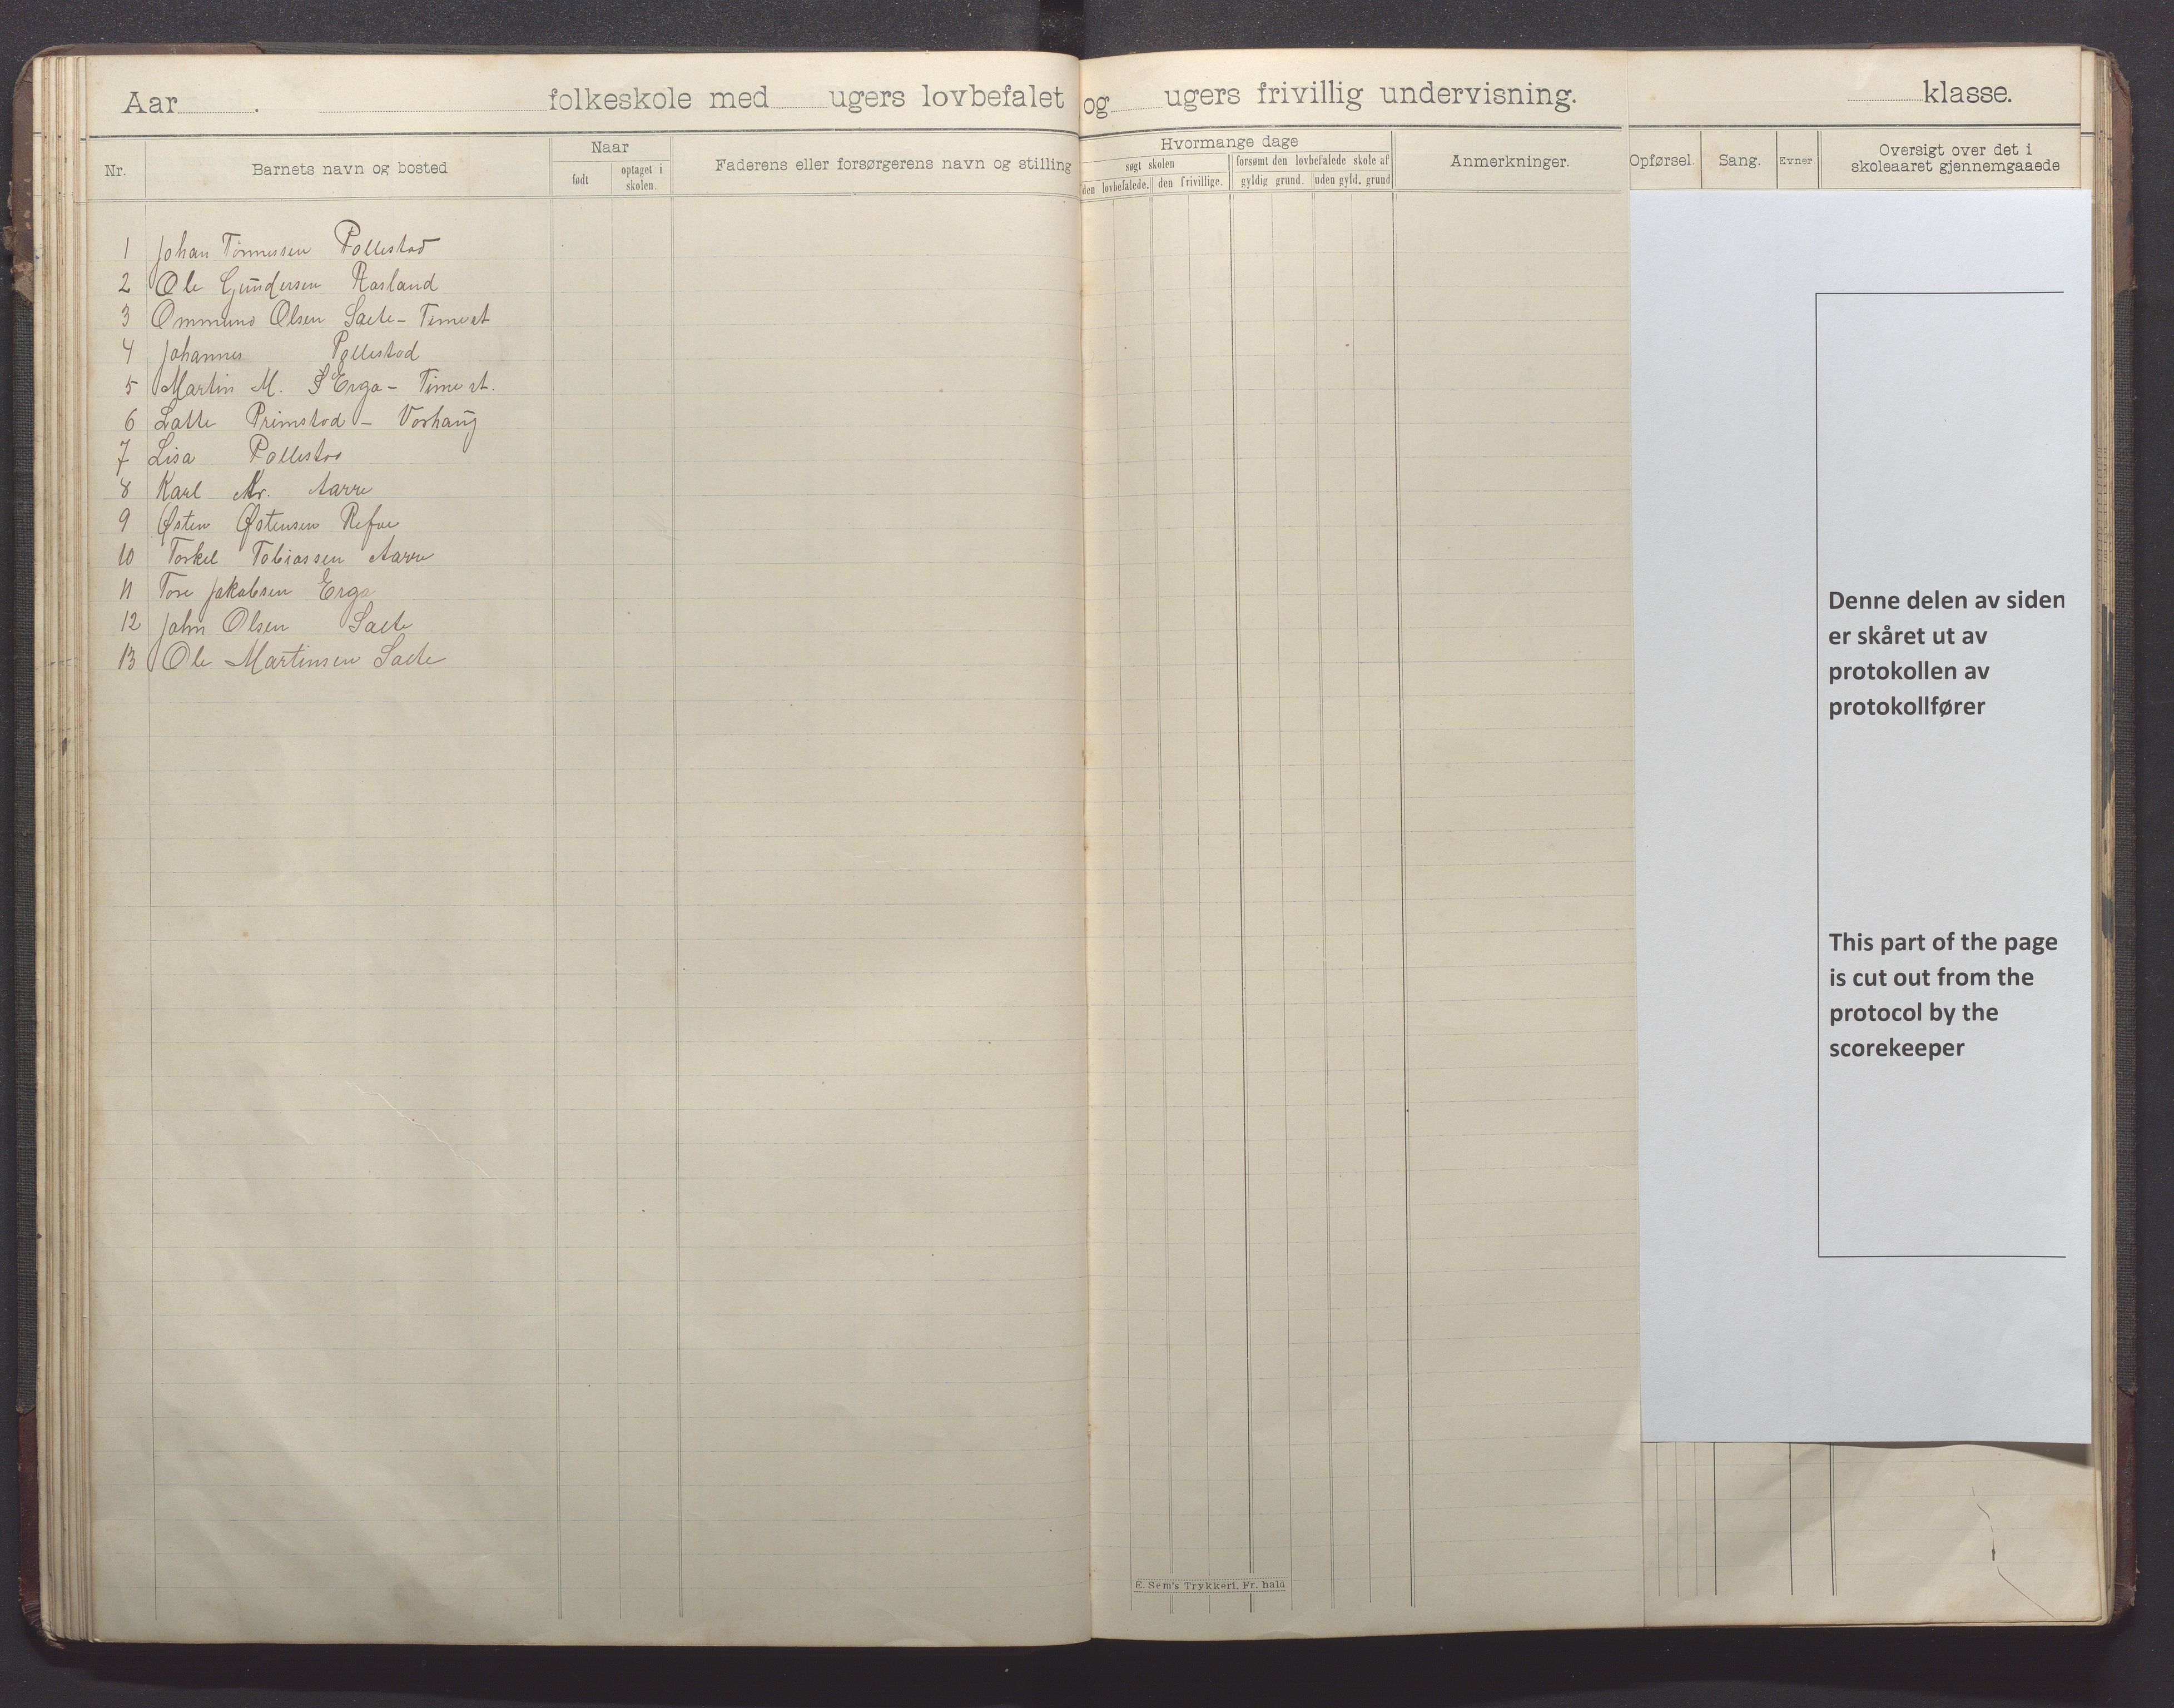 Aar . folkeskole med ugers lovbefalet og ugers frivillig undervisning. klasse.
Nr.
Barnets navn og bosted
Naar
født
optaget i
skolen.
Faderens eller forsørgerens navn og stilling
Hvormange dage
søgt skolen
den lovbefalede. den frivillige.
forsømt den lovbefalede skole af
gyldig grund. uden gyld. grund
Anmerkninger.
Opførsel.
Sang.
Evner
Oversigt over det i
skoleaaret gjennemgaaede
1 Johan Tønnessen Pollestad
2 Ole Gundersen Rosland
3 Ommund Olsen Sæte - Time st
4 Johannes Pollestad
5 Martin M. Erga - Time st.
6 Lalle Primstad - Vorhaug
7 Lisa Pollestad
8 Karl Kr. Aarre
9 Østen Østensen Refve
10 Torkel Tobiassen Aarre
11 Tore Jakobsen Erga
12 John Olsen Sæte
13 Ole Martinsen Sæte
Denne delen av siden
er skåret ut av
protokollen av
protokollfører
This part of the page
is cut out from the
protocol by the
scorekeeper
E. Sem's Trykkeri. Fr. hald